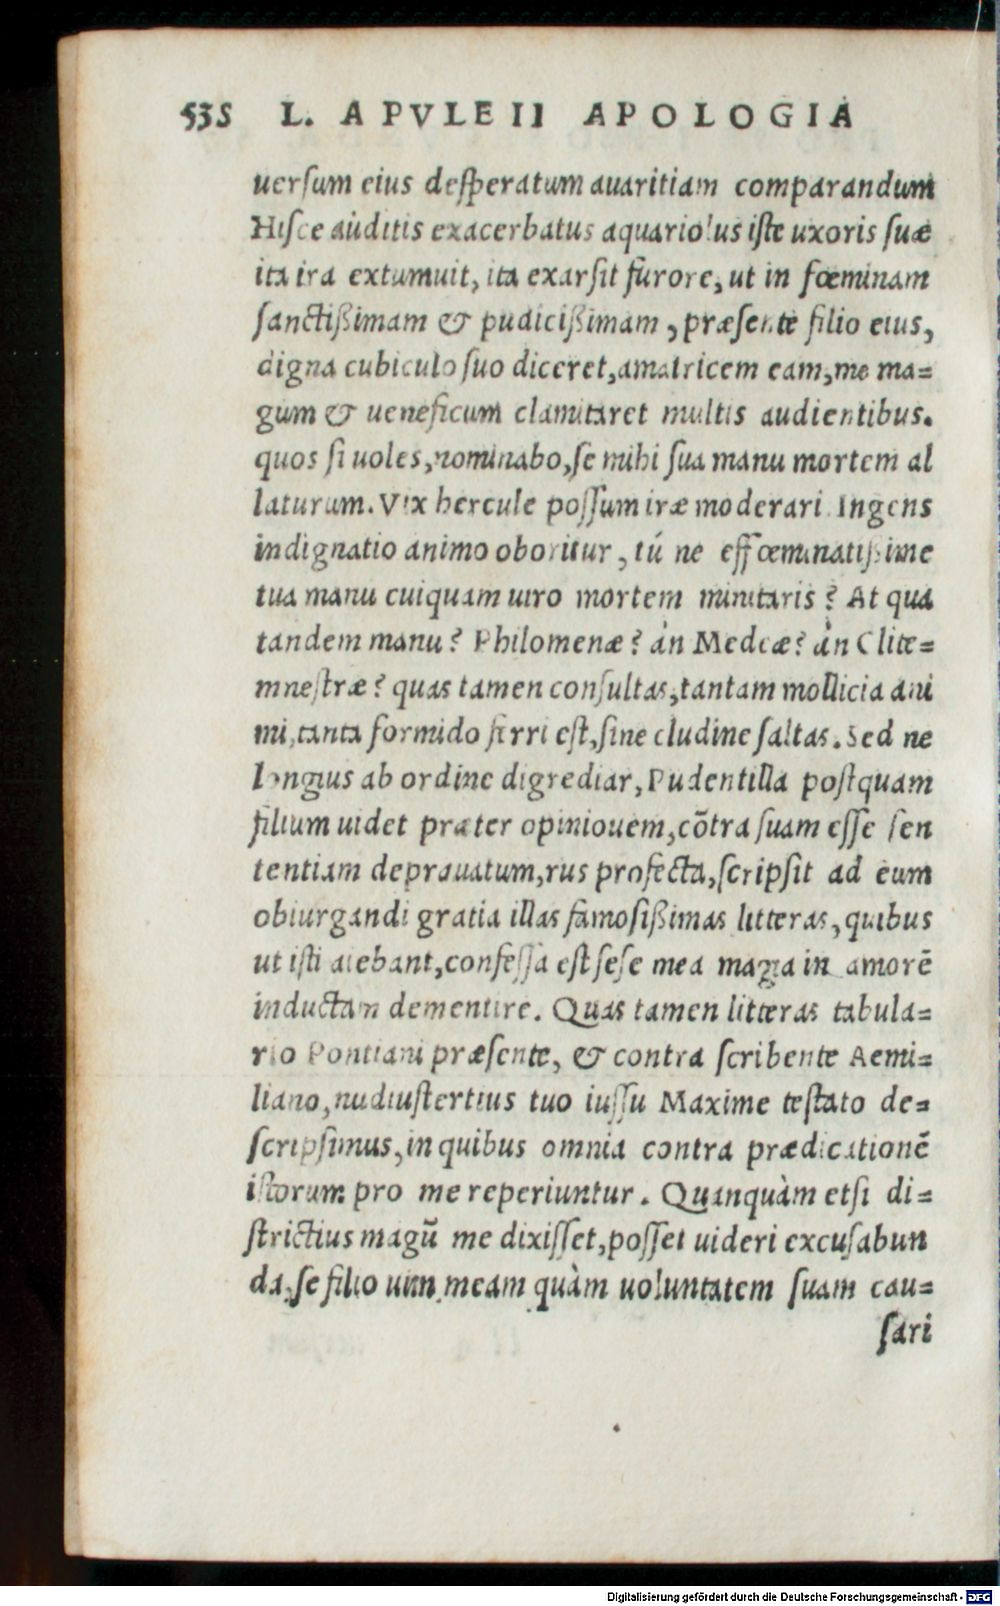 535 L. APVLEII APOLOGIA
uersum eius desperatum auaritiam comparandum
Hisce auditis exacerbatus aquariolus iste uxoris suæ
ita ira extumuit, ita exarsit furore, ut in fœminam
sanctißimam & pudicißimam, præsente filio eius,
digna cubiculo suo diceret, amatricem eam, me ma=
gum & ueneficum clamitaret multis audientibus.
quos si uoles, nominabo, se mihi sua manu mortem al
laturum. Vix hercule possum iræ moderari. Ingens
indignatio animo oboritur, tú ne effœminatißime
tua manu cuiquam uiro mortem minitaris? At qua
tandem manu? Philomenæ? àn Medeæ? àn Clite=
mnestræ? quas tamen consultas, tantam mollicia ani
mi, tanta formido ferri est, sine cludine saltas. Sed ne
longius ab ordine digrediar, Pudentilla postquam
filium uidet præter opiniouem, cõtra suam esse sen
tentiam deprauatum, rus profecta, scripsit ad eum
obiurgandi gratia illas famosißimas litteras, quibus
ut isti aiebant, confessa est sese mea magia in amorẽ
inductam dementire. Quas tamen litteras tabula=
rio Pontiani præsente, & contra scribente Aemi=
liano, nudiustertius tuo iussu Maxime testato de=
scripsimus, in quibus omnia contra prædicationẽ
istorum pro me reperiuntur. Quanquàm etsi di=
strictius magũ me dixisset, posset uideri excusabun
da, se filio uim meam quàm uoluntatem suam cau=
sari
Digitalisierung gefördert durch die Deutsche Forschungsgemeinschaft - DFG